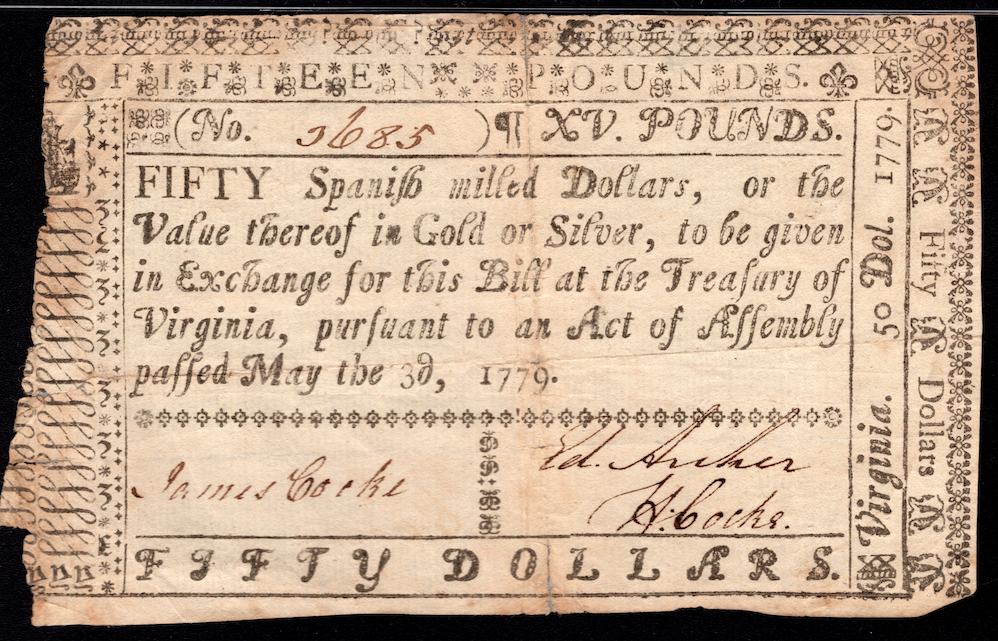 FIFTEEN POUNDS.
(No. 3685) ¶ XV. POUNDS.
FIFTY Spaniſh milled Dollars, or the
Value thereof in Gold or Silver, to be given
in Exchange for this Bill at the Treaſury of
Virginia, purſuant to an Act of Aſſembly
paſſed May the 3d, 1779.
James Cocke
Ed. Archer
H. Cocke.
FIFTY DOLLARS.
Virginia. 50 Dol. 1779.
Fifty Dollars